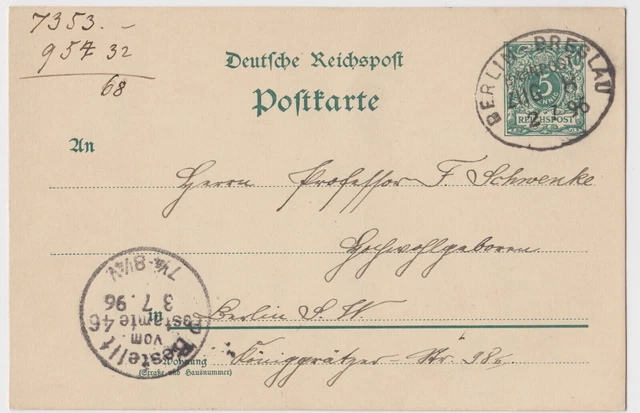 7353.-
954 32
68
Deutsche Reichspost
Postkarte
BERLIN BRESLAU
BAHNPOST
ZUG 8
2 7 96
5
REICHSPOST
An
Herrn Professor F. Schwenke
Hochwohlgeboren
in Berlin S. W
Wohnung Königgrätzer-Str. 98
(Straße und Hausnummer)
Bestellt
vom
Postamte 46
3 7. 96
7½-8½V